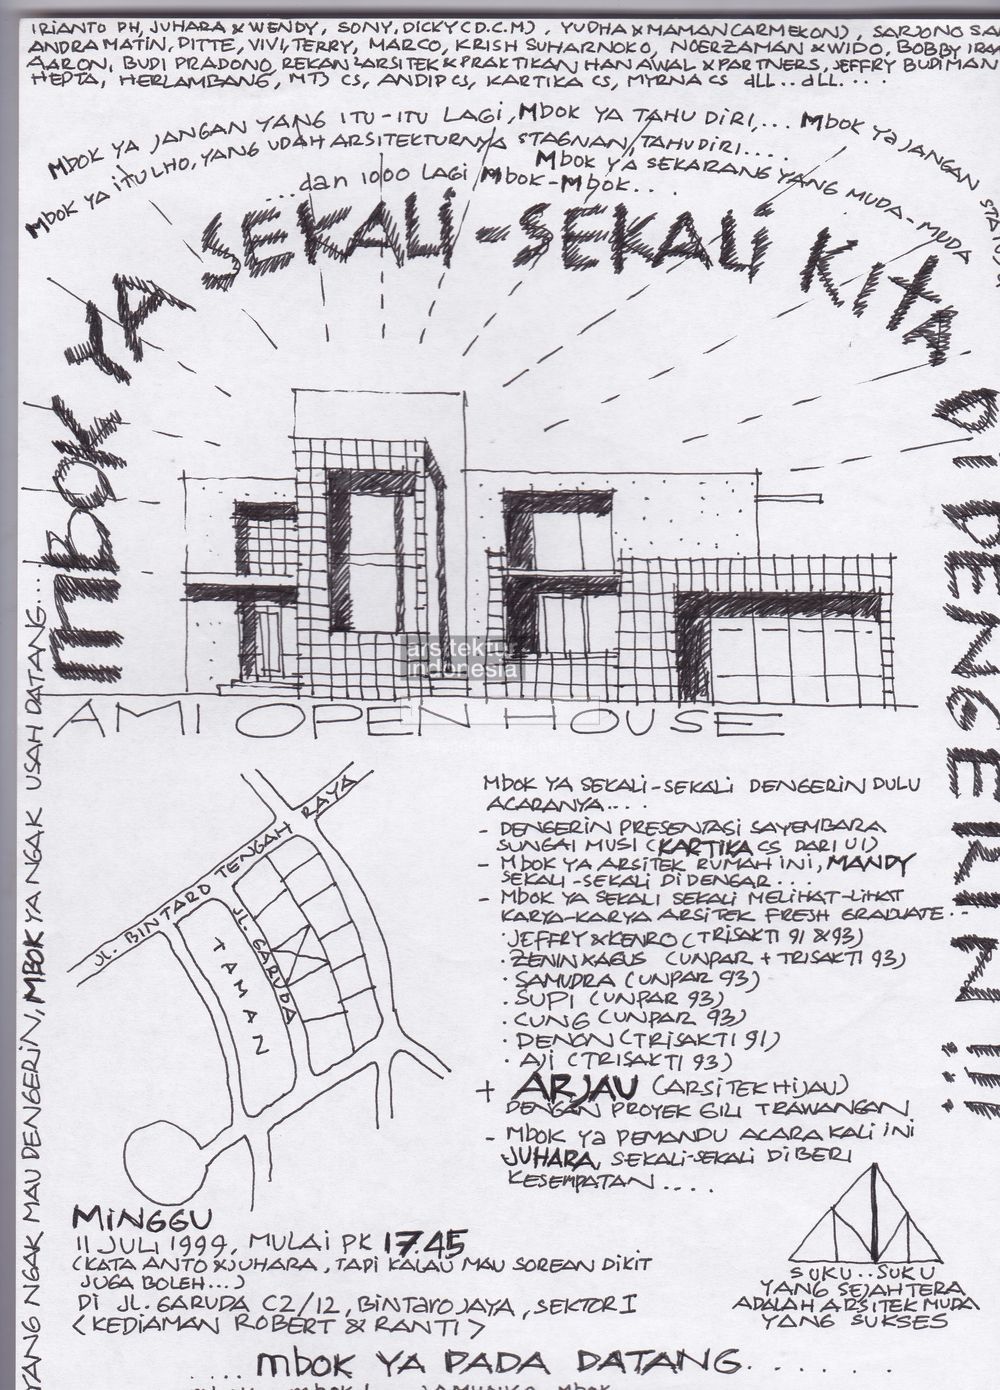 IRIANTO PH, JUHARA & WENDY, SONY, DICKY (D.C.M), YUDHA & MAMAN (ARMEKON), SARJONO SA
ANDRA MATIN, DITTE, VIVI, TERRY, MARCO, KRISH SUHARNOKO, NOERZAMAN & WIDO, BOBBY
AARON, BUDI PRADONO, REKAN2 ARSITEK & PRAKTIKAN HAN AWAL & PARTNERS, JEFFRY BUDIMAN
HEPTA, HERLAMBANG, MTJ CS, ANDIP CS, KARTIKA CS, MYRNA CS dLL..dLL....
MBOK YA JANGAN YANG ITU-ITU LAGI, MBOK YA TAHU DIRI,... MBOK YA JANGAN
MBOK YA ITU LHO, YANG UDAH ARSITEKTURNYA STAGNAN, TAHU DIRI.....
MBOK YA SEKARANG YANG MUDA-MUDA
...dan 1000 LAGI MBOK-MBOK...
MBOK YA SEKALI-SEKALI KITA DI DENGERIN!!
arsitektur
indonesia
AMI OPEN HOUSE
YANG NGAK MAU DENGERIN, MBOK YA NGAK USAH DATANG...
JL. BINTARO TENGAH RAYA
JL. GARUDA
TAMAN
MBOK YA SEKALI-SEKALI DENGERIN DULU
ACARANYA....
- DENGERIN PRESENTASI SAYEMBARA
SUNGAI MUSI (KARTIKA CS DARI UI)
- MBOK YA ARSITEK RUMAH INI, MANDY
SEKALI-SEKALI DI DENGAR....
- MBOK YA SEKALI SEKALI MELIHAT-LIHAT
KARYA-KARYA ARSITEK FRESH GRADUATE..
· JEFFRY & KENRO (TRISAKTI 91 & 93)
· ZENIN & AGUS (UNPAR + TRISAKTI 93)
· SAMUDRA (UNPAR 93)
· SUPI (UNPAR 93)
· CUNG (UNPAR 93)
· DENON (TRISAKTI 91)
· AJI (TRISAKTI 93)
+ ARJAU (ARSITEK HIJAU)
DENGAN PROYEK GILI TRAWANGAN
- MBOK YA PEMANDU ACARA KALI INI
JUHARA, SEKALI-SEKALI DIBERI
KESEMPATAN....
MINGGU
11 JULI 1999, MULAI PK 17.45
(KATA ANTO & JUHARA, TAPI KALAU MAU SOREAN DIKIT
JUGA BOLEH...)
DI JL. GARUDA C2/12, BINTARO JAYA, SEKTOR I
<KEDIAMAN ROBERT & RANTI>
SUKU..SUKU
YANG SEJAHTERA
ADALAH ARSITEK MUDA
YANG SUKSES
....MBOK YA PADA DATANG.......